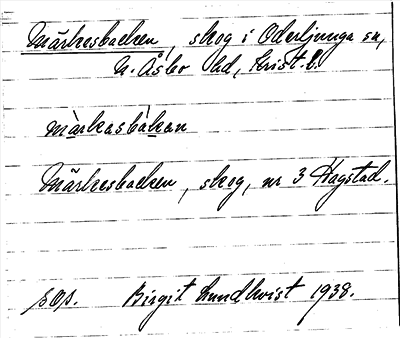 Märkesbacken, skog i Oderljunga sn,
N. Åsbo hd, Krist. l.
màrkasbàkan
Märkesbacken, skog, nr 3 Hagstad.
sOp. Birgit Lundkvist 1938.